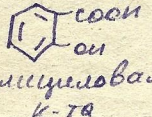 COOH
OH
лициловая
к-та